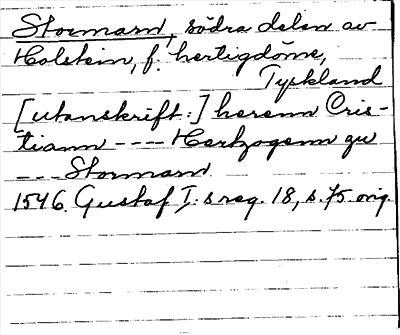 Stormarn, södra delen av
Holstein, f. hertigdöme,
Tyskland
[utanskrift:] herenn Cris-
tiann ---- Hertzogenn zu
--- Stormarn
1546. Gustaf I:s reg. 18, s. 75. orig.